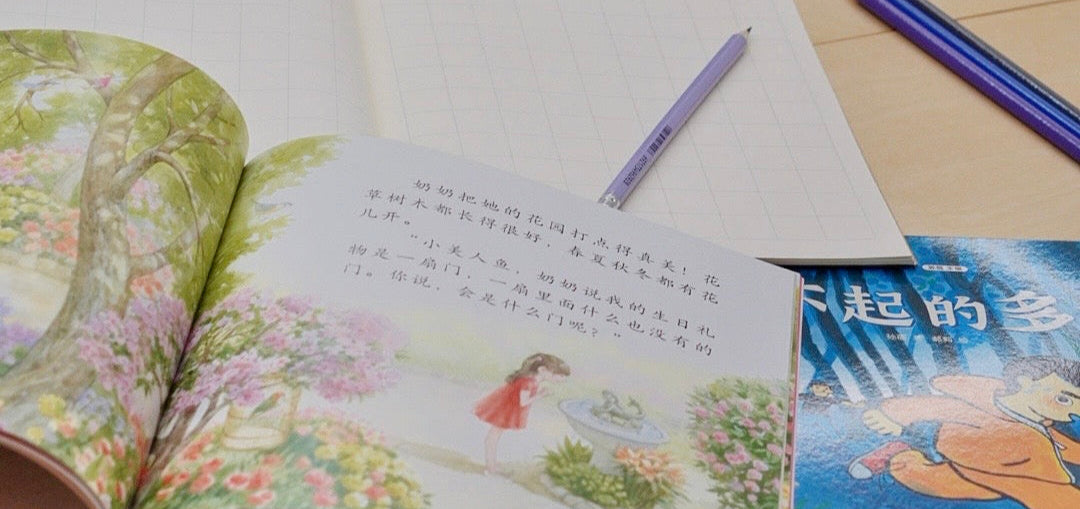 奶奶把她的花园打点得真美！花
草树木都长得很好，春夏秋冬都有花
儿开。
“小美人鱼，奶奶说我的生日礼
物是一扇门，一扇里面什么也没有的
门。你说，会是什么门呢？”
不起的多